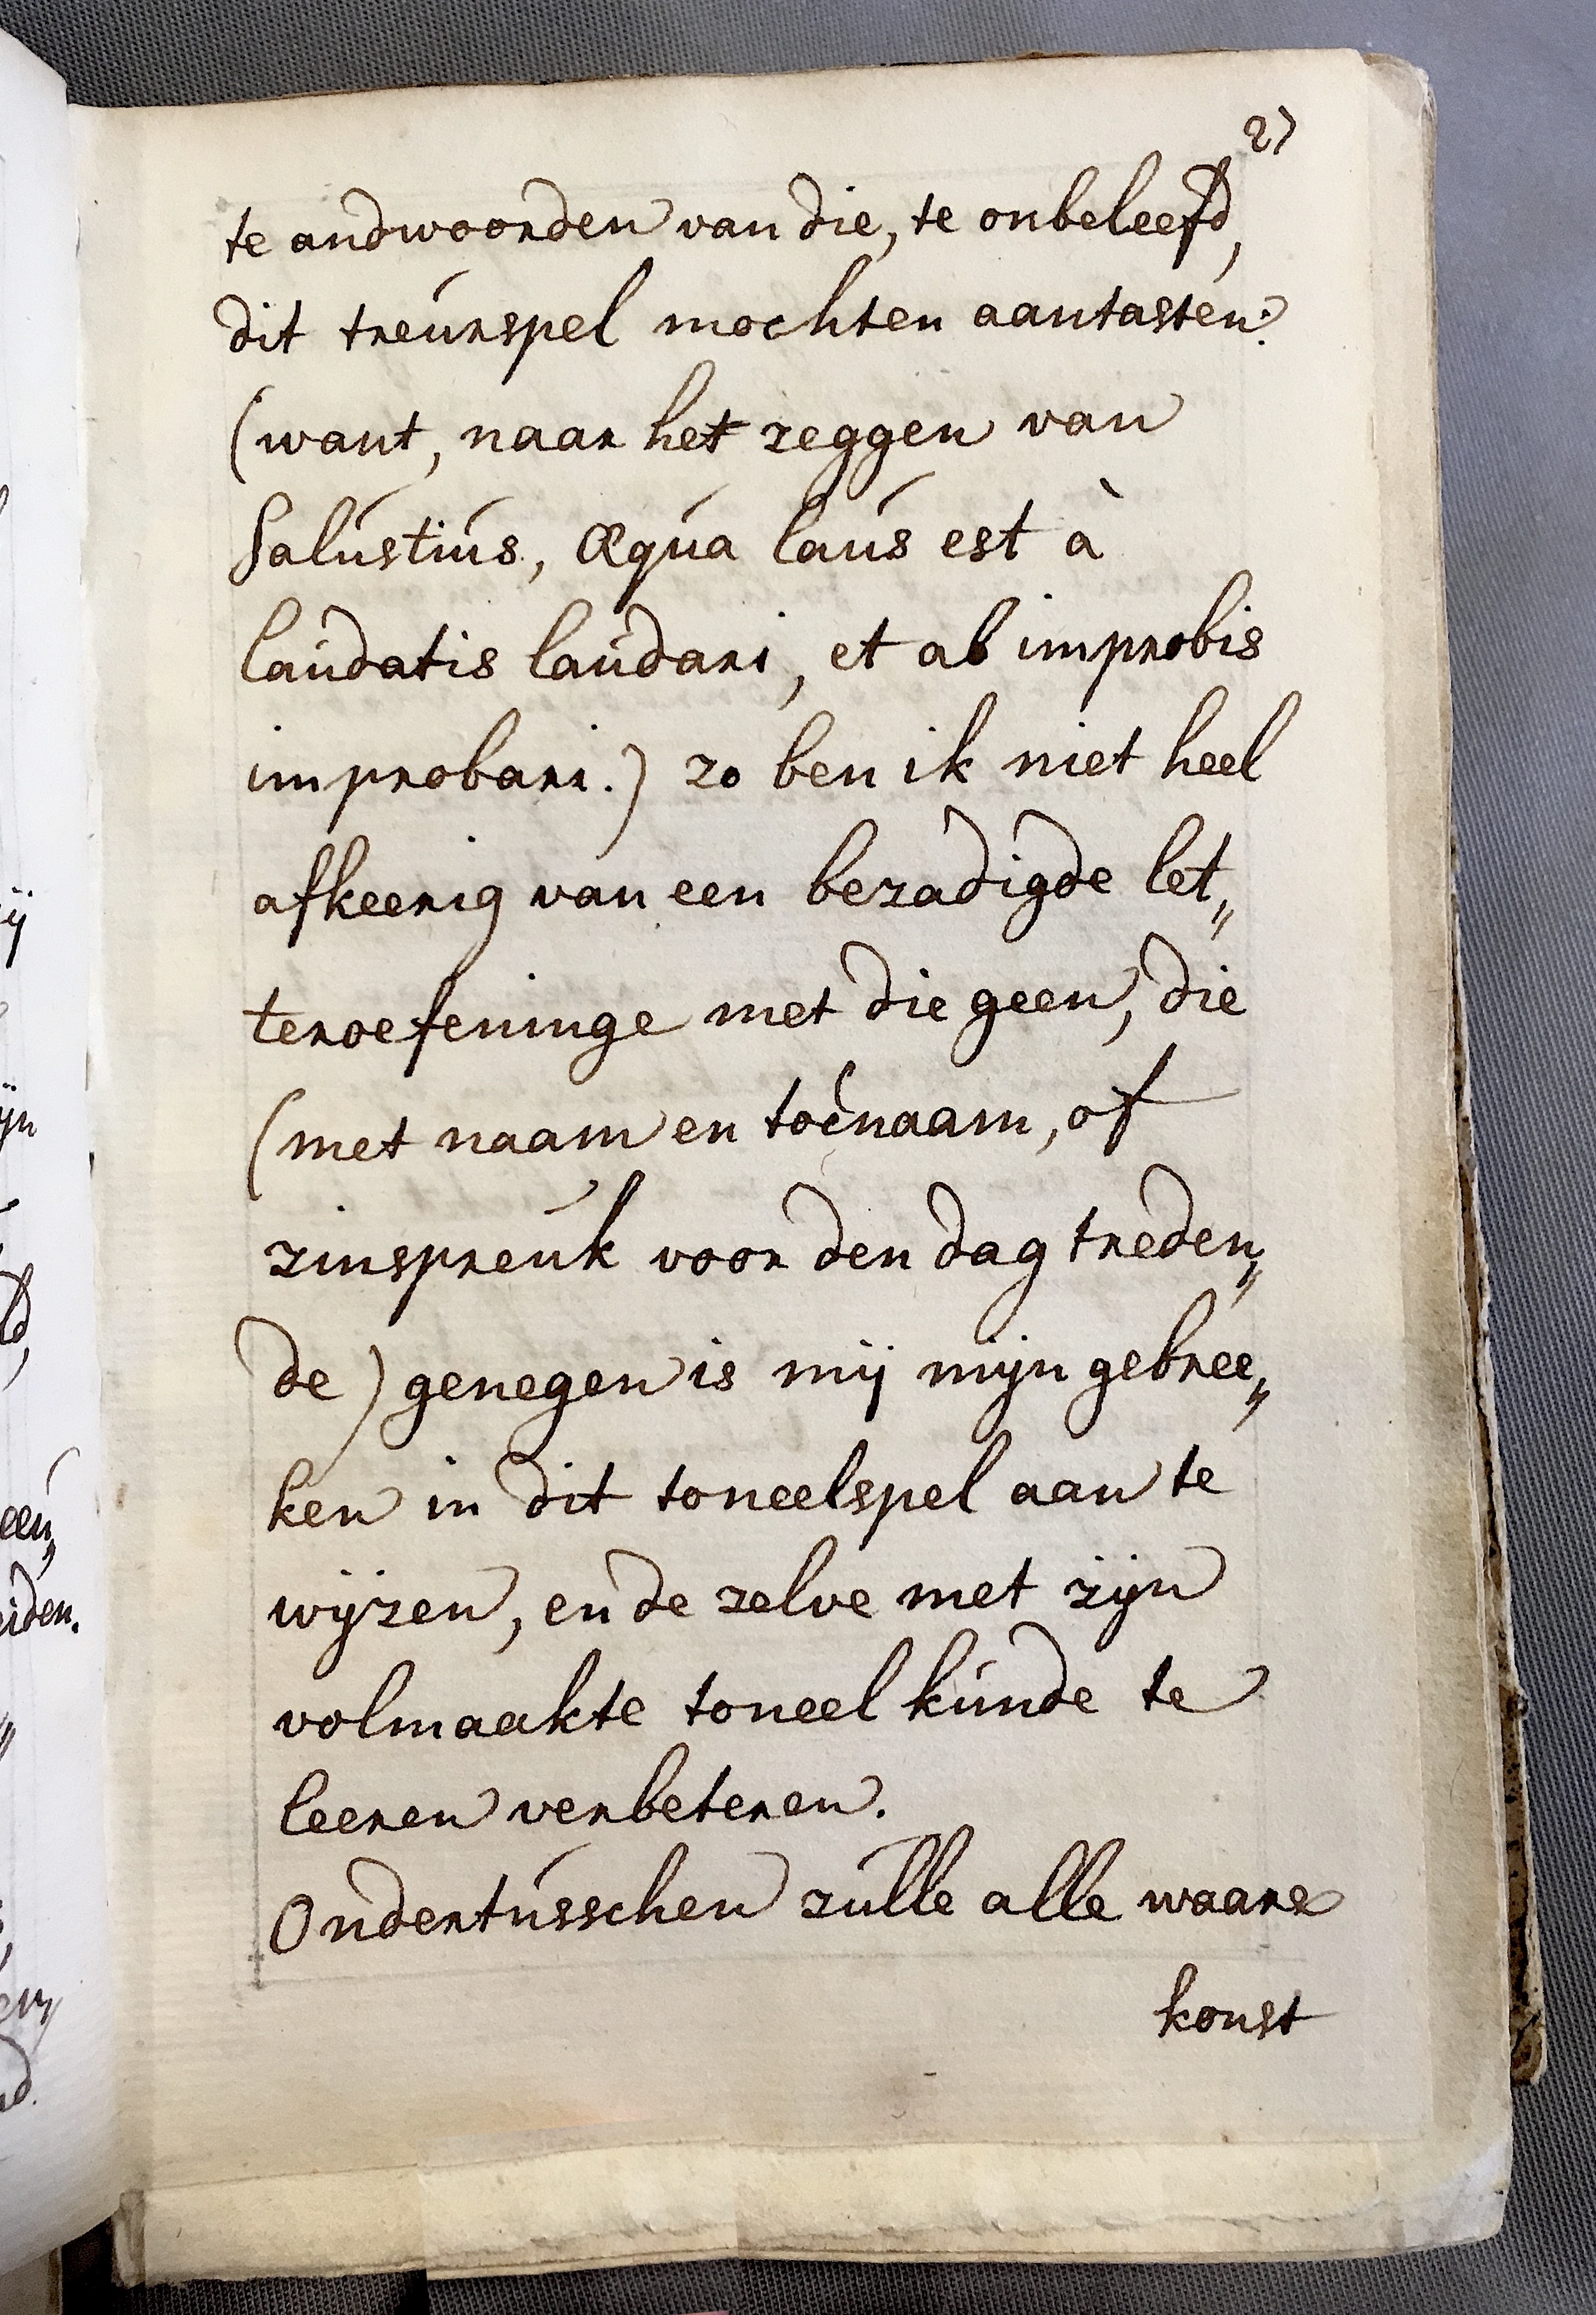 27
te andwoorden van die, te onbeleefd,
dit treurspel mochten aantasten:
(want, naar het zeggen van
Salústiús, Æqúa laús est à
laúdatis laúdari, et ab improbis
improbari.) zo ben ik niet heel
afkeerig van een bezadigde let„
teroefeninge met die geen, die
(met naam en toenaam, of
zinspreúk voor den dag treden„
de) genegen is mij mijn gebree„
ken in dit toneelspel aan te
wijzen, en de zelve met zijn
volmaakte toneel kúnde te
leeren verbeteren.
Ondertússchen zúlle alle waare
konst